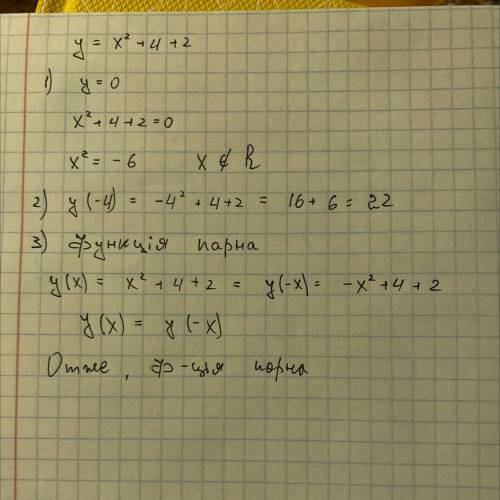 y = x² + 4 + 2
1) y = 0
x² + 4 + 2 = 0
x² = - 6 x ∉ R
2) y (-4) = -4² + 4 + 2 = 16 + 6 = 22
3) Функція парна
y(x) = x² + 4 + 2 = y(-x) = -x² + 4 + 2
y(x) = y(-x)
Отже, ф-ція парна